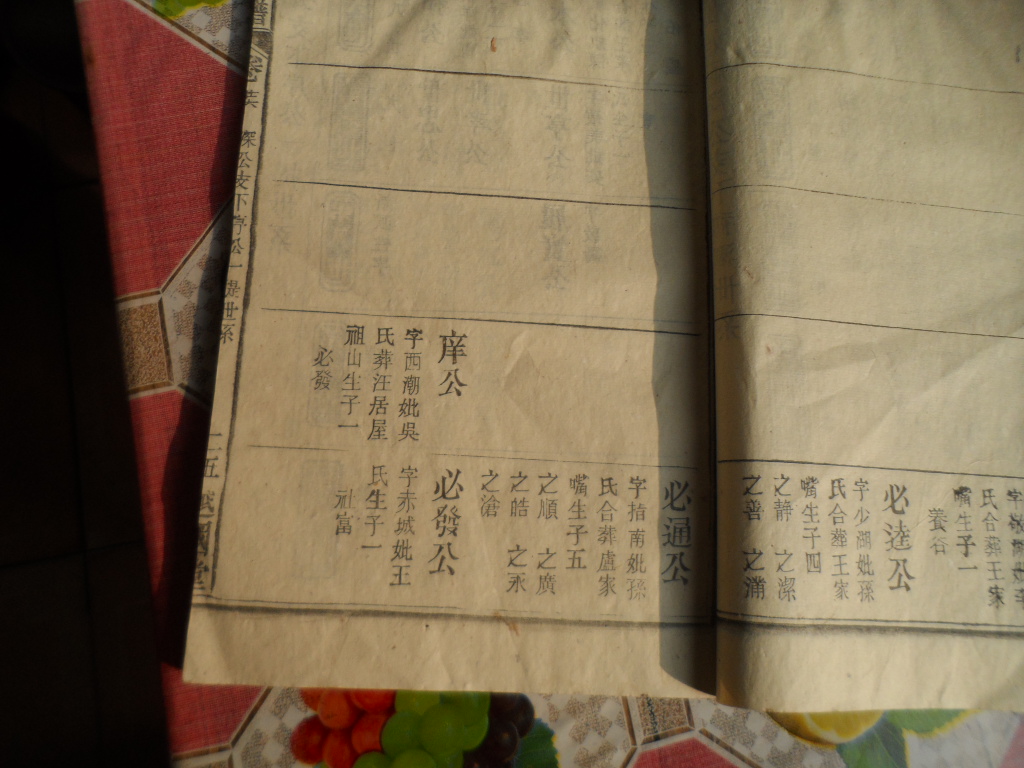 庠公
字西潮妣吳
氏葬汪居屋
祖山生子一
必發
氏合葬王家
嘴生子一
養谷
必逵公
字少湖妣孫
氏合葬王家
嘴生子四
之静 之潔
之善 之
必通公
字指南妣孫
氏合葬盧家
嘴生子五
之順 之廣
之皓 之永
之滄
必發公
字赤城妣王
氏生子一
社富
譜 卷 公支下亨公一 世系 二五 國堂